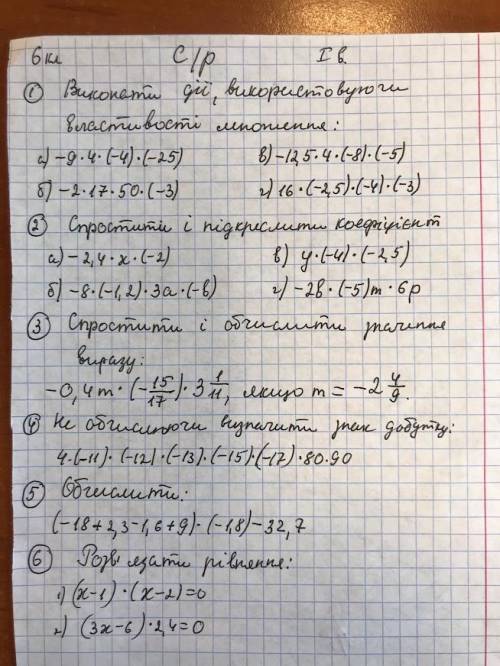 6 кл С/р І в.
① Виконати дії, використовуючи
властивості множення:
а) -9·4·(-4)·(-25) в) -12,5·4·(-8)·(-5)
б) -2·17·50·(-3) г) 16·(-2,5)·(-4)·(-3)
② Спростити і підкреслити коефіцієнт
а) -2,4·x·(-2) в) y·(-4)·(-2,5)
б) -8·(-1,2)·3a·(-b) г) -2b·(-5)m·6p
③ Спростити і обчислити значення
виразу:
-0,4m·(-15/17)·3 1/11, якщо m = -2 4/9.
④ Не обчислюючи визначити знак добутку:
4·(-11)·(-12)·(-13)·(-15)·(-17)·80·90
⑤ Обчислити:
(-18+2,3-1,6+9)·(-1,8)-32,7
⑥ Розв'язати рівняння:
1) (x-1)·(x-2)=0
2) (3x-6)·2,4=0